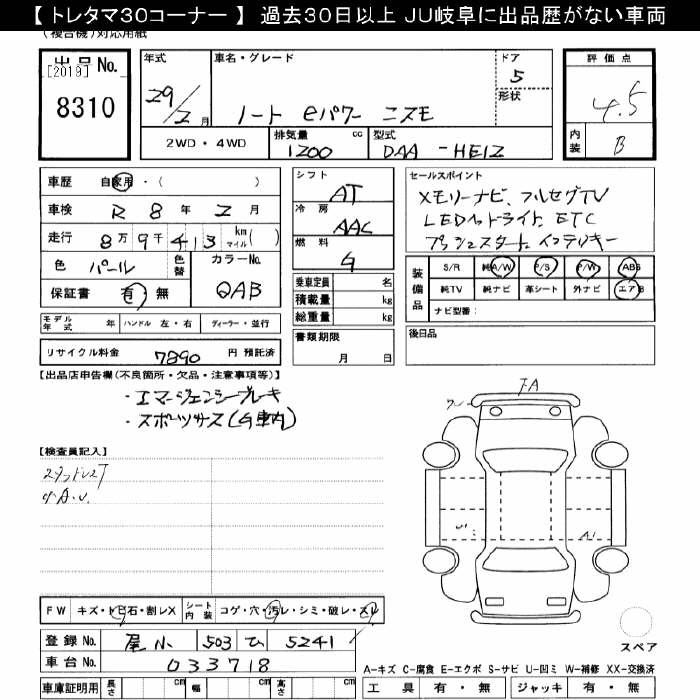 【 トレタマ30コーナー 】 過去30日以上 JU岐阜に出品歴がない車両
(複合機)対応用紙
出品 No. [2019] 8310
年式 29/2月
車名・グレード ノート eパワー ニスモ
ドア 5
形状
評価点 4.5
内装 B
2WD・4WD
排気量 cc 1200
型式 DAA-HE12
車歴 自家用・( )
車検 R 8年 2月
走行 8万9千413 km マイル( )
色 パール 色替 カラーNo. QAB
保証書 有・無
モデル年式 年 ハンドル 左・右 ディーラー・並行
リサイクル料金 7890 円 預託済
シフト AT
冷房 AAC
燃料 G
乗車定員 名
積載量 kg
総重量 kg
書類期限 月 日
セールスポイント
メモリーナビ、フルセグTV
LEDヘッドライト、ETC
プッシュスタート、インテリキー
装備品 S/R 純A/W P/S P/W ABS
純TV 純ナビ 革シート 外ナビ エアB
ナビ型番:
後日品
【出品店申告欄(不良箇所・欠品・注意事項等)】
・エマージェンシーブレーキ
・スポーツサス(G車内)
【検査員記入】
FA
A1
FW キズ・トビ石・割レX シート内装 コゲ・穴・汚レ・シミ・破レ・スレ
登録 No. 503 ひ 5241
車台 No. 033718
車庫証明用 長さ cm 幅 cm 高さ cm
スペア
A-キズ C-腐食 E-エクボ S-サビ U-凹ミ W-補修 XX-交換済
工具 有・無 ジャッキ 有・無